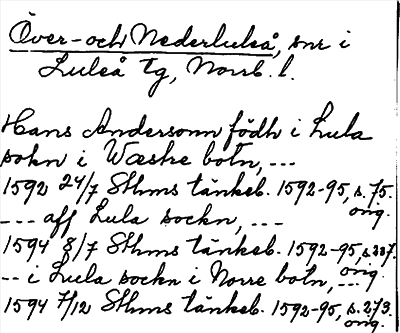 Över- och Nederluleå, snr i
Luleå tg, Norrb. l.
Hans Andersonn födh i Lula
sokn i Wæstre botn, ...
1592 24/7 Sthms tänkeb. 1592-95, s. 75.
orig.
... aff Lula sockn, ...
1594 8/7 Sthms tänkeb. 1592-95, s. 237.
orig.
... i Lula sockn i Norre botn, ...
1594 7/12 Sthms tänkeb. 1592-95, s. 273.
orig.